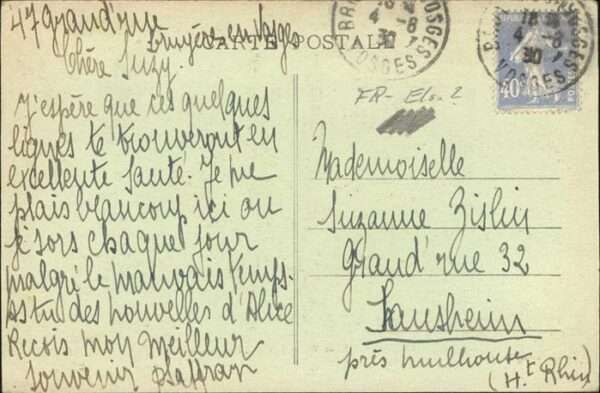 47 Grand'rue
Bruyère en Vosges
CARTE POSTALE
Chère Suzy.
J'espère que ces quelques
lignes te trouveront en
excellente santé. Je me
plais beaucoup ici ou
je sors chaque jour
malgré le mauvais temps.
As tu des nouvelles d'Alice
Reçois mon meilleur
Souvenir
VOSGES
18
4 -8
30
VOSGES
18
4 -8
30
VOSGES
40
FR-
Mademoiselle
Suzanne Zislin
Grand'rue 32
Sausheim
près mulhouse
(Ht Rhin)